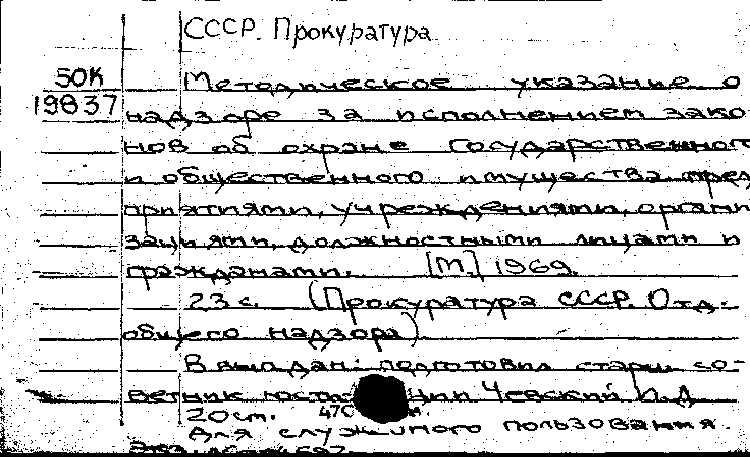 СССР. Прокуратура
50К
19837
Методическое указание о
надзоре за исполнением зако
нов об охране государственног
и общественного имущества пред
приятиями, учреждениями, органи
зациями, должностными лицами и
гражданами. [М.] 1969.
23 с. (Прокуратура СССР. Отд.
общего надзора)
В вып. дан: подготовил старш. со-
ветник юсти ции Чевский И. Д
20 см. 470
Для служебного пользования.